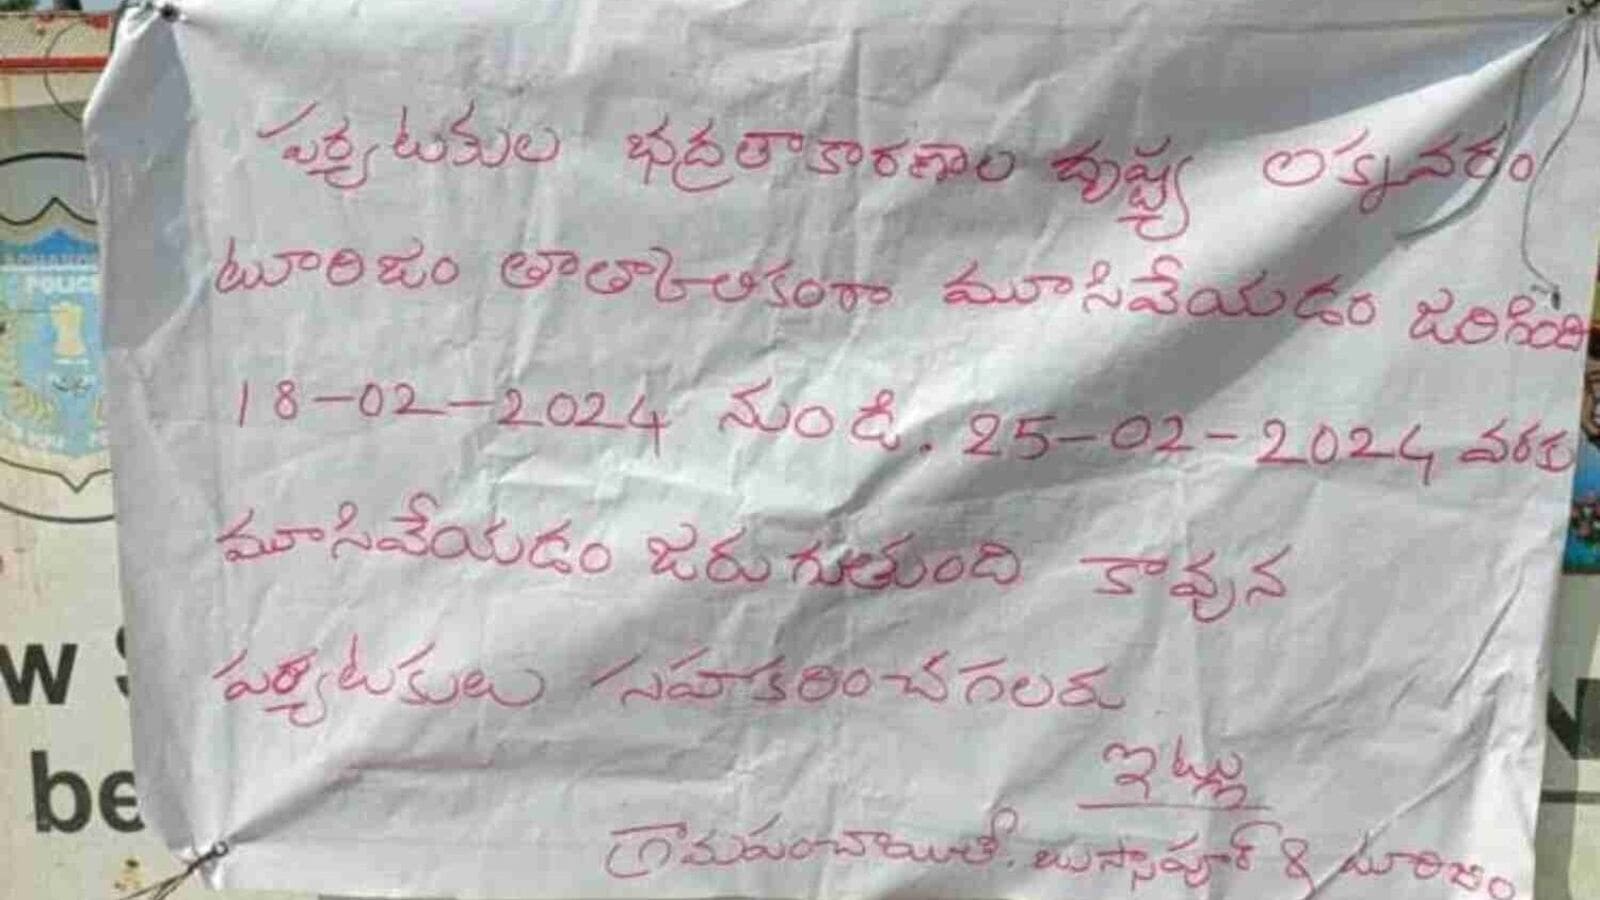 పర్యటకుల భద్రతాకారణాల దృష్ట్యా లక్నవరం
టూరిజం తాత్కాలికంగా మూసివేయడం జరిగింది
18-02-2024 నుండి. 25-02-2024 వరకు
మూసివేయడం జరుగుతుంది కావున
పర్యటకులు సహకరించగలరు
ఇట్లు
గ్రామపంచాయితీ. బుస్సాపూర్ & టూరిజం
POLICE
w
be